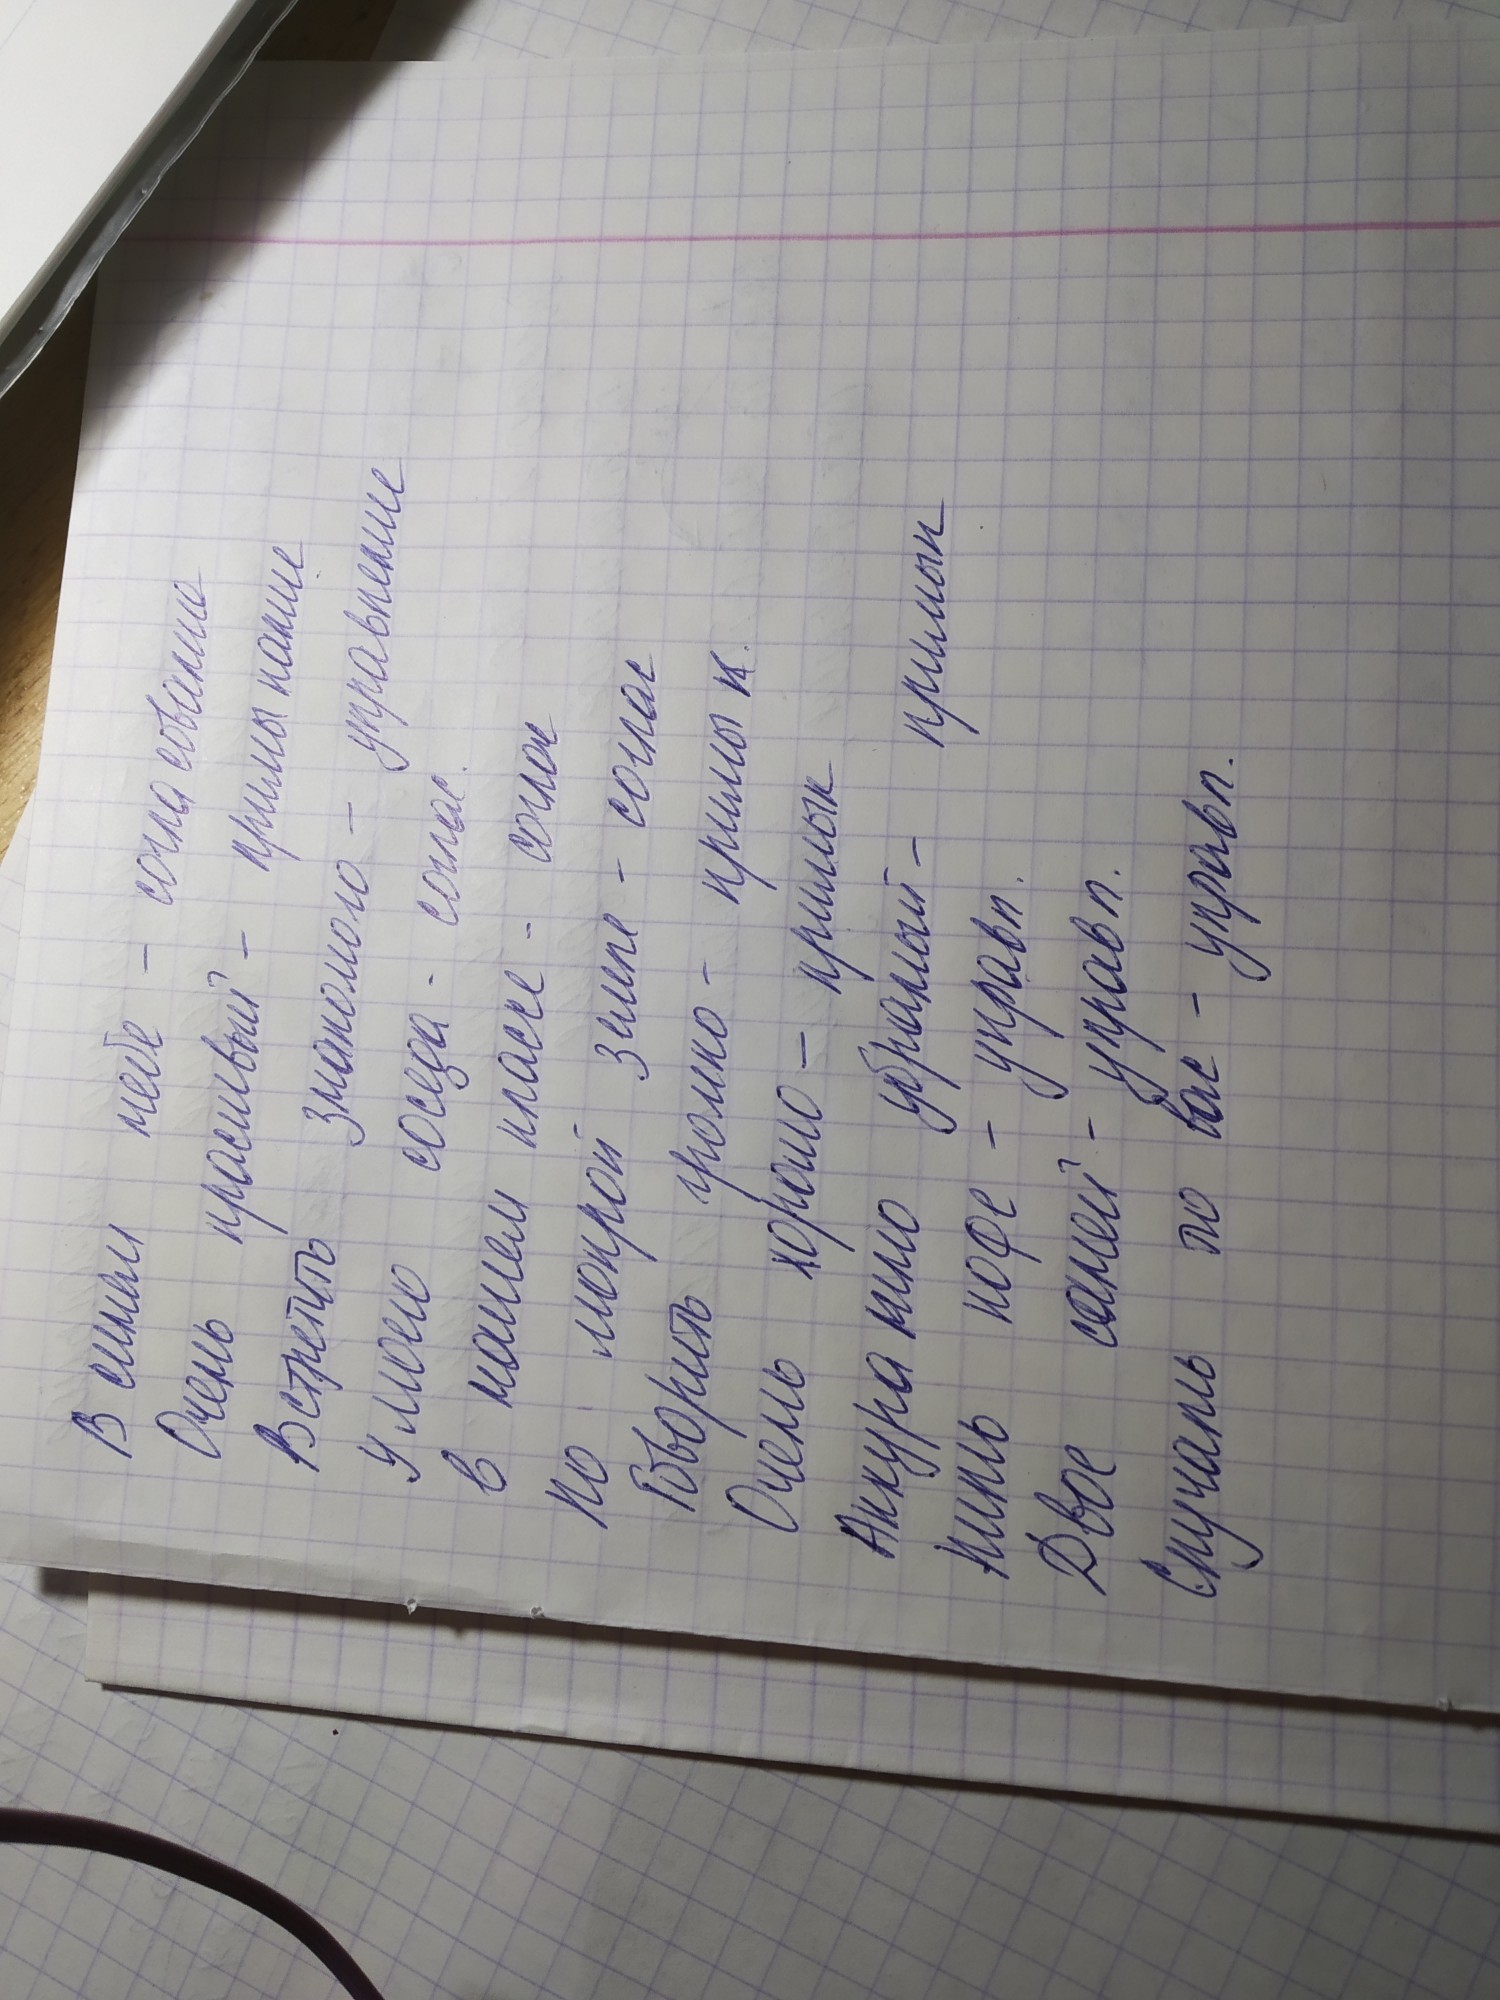 В синем небе - согласование
Очень красивый - примыкание
Встретить знакомого - управление
У моего соседа - соглас.
в нашем классе - соглас
по мокрой земле - соглас
Говорить громко - примык.
Очень хорошо - примык
Аккуратно убранный - примык
Пить кофе - управл.
Двое саней - управл.
Скучать по вас - управл.